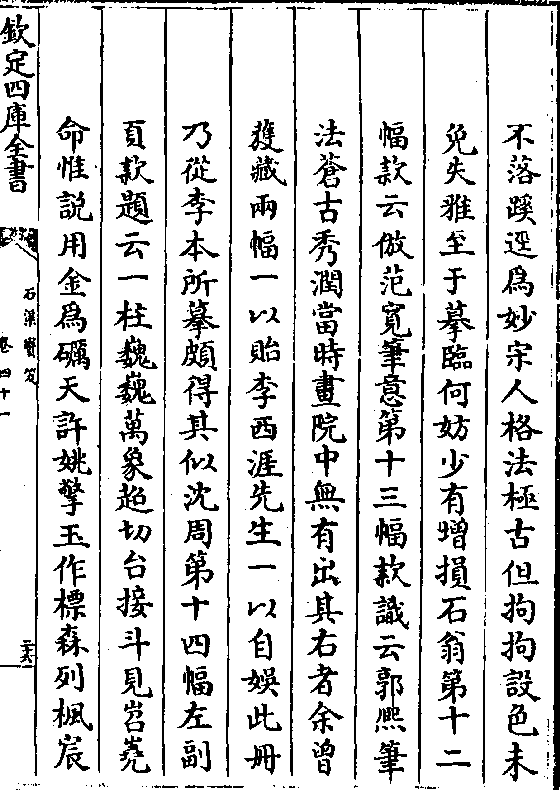 不落蹊逕為妙宋人格法極古但拘拘設色未
免失雅至于摹臨何妨少有增損石翁第十二
幅款云倣范寛筆意第十三幅款識云郭熙筆
法蒼古秀潤當時畫院中無有出其右者余曽
獲藏兩幅一以貽李西涯先生一以自娯此冊
乃從李本所摹頗得其似沈周第十四幅左副
頁款題云一柱巍巍萬象超切台接斗見岧嶤
命惟説用金為礪天許姚擎玉作標森列楓宸
欽定四庫全書
石渠寶笈
卷四十一
二十六